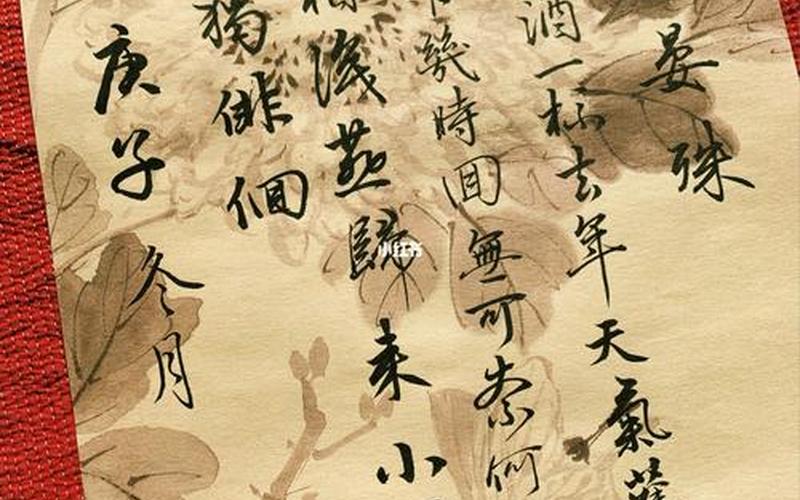 晏殊
酒一杯去年天氣舊
幾時回無可奈何
相識燕歸來小
獨俳佪
庚子冬月
小红书